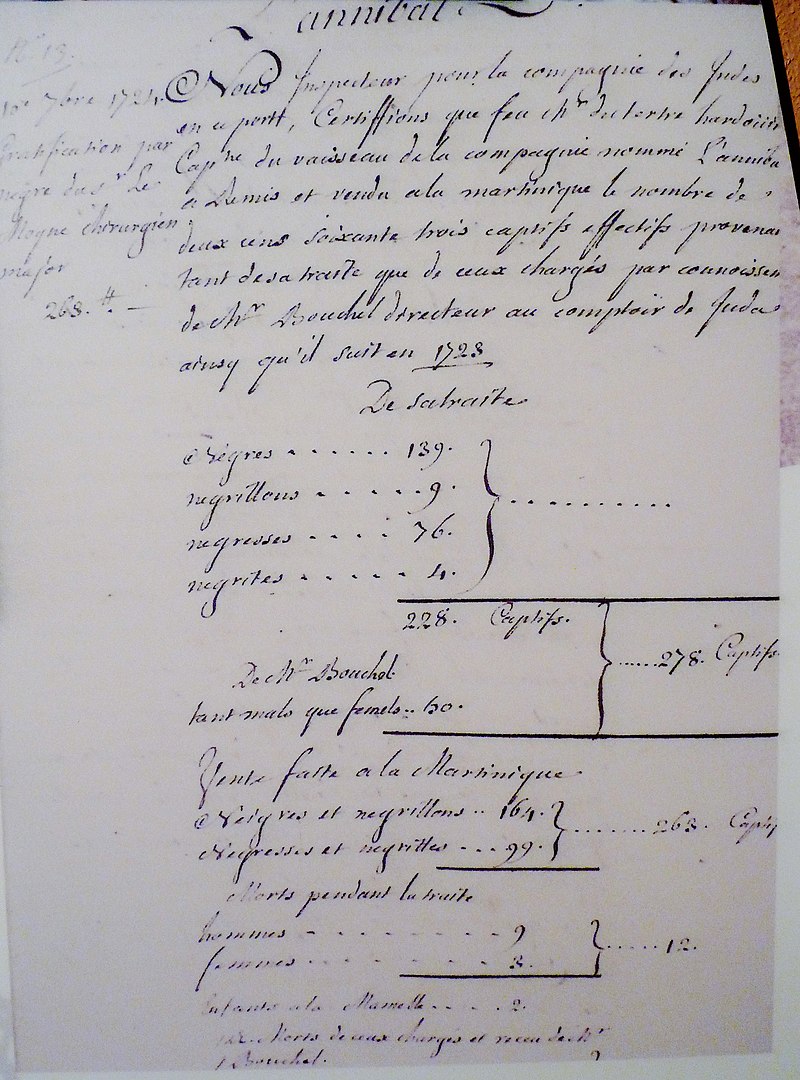 L'annibal
N.º 13.
10.e 7bre 1724.
Gratification par
negre du s.r Le
Moyne chirurgien
major
263.#. —
Nous Inspecteur pour la compagnie des Indes
en ce portt, Certiffions que feu M.r dutertre hardoüin
Cap.ne du vaisseau de la compagnie nommé L'anniba
a Remis et vendu a la martinique le nombre de
deux cens soixante trois captifs effectifs provenan
tant de sa traitte que de ceux chargés par connoissem
de M.r Bouchel directeur au comptoir de Juda
ainsy qu'il suit en 1723
De sa traitte
Nègres - - - - - - 139.
negrillons - - - - - 9.
negresses - - - - 76.
negrites - - - - - 4.
228. Captifs.
278. Captifs
De M.r Bouchel
tant mals que femels.. 50.
Vente faite a la Martinique
Neigres et negrillons .. 164.
263. Captif
Negresses et negrittes - - - 99.
Morts pendant la traitte
hommes - - - - - - - - 9
12.
femmes - - - - - - - - 3.
Enfants a la Mamelle - - - - 2.
Morts de ceux chargés et receu de M.r
Bouchel.